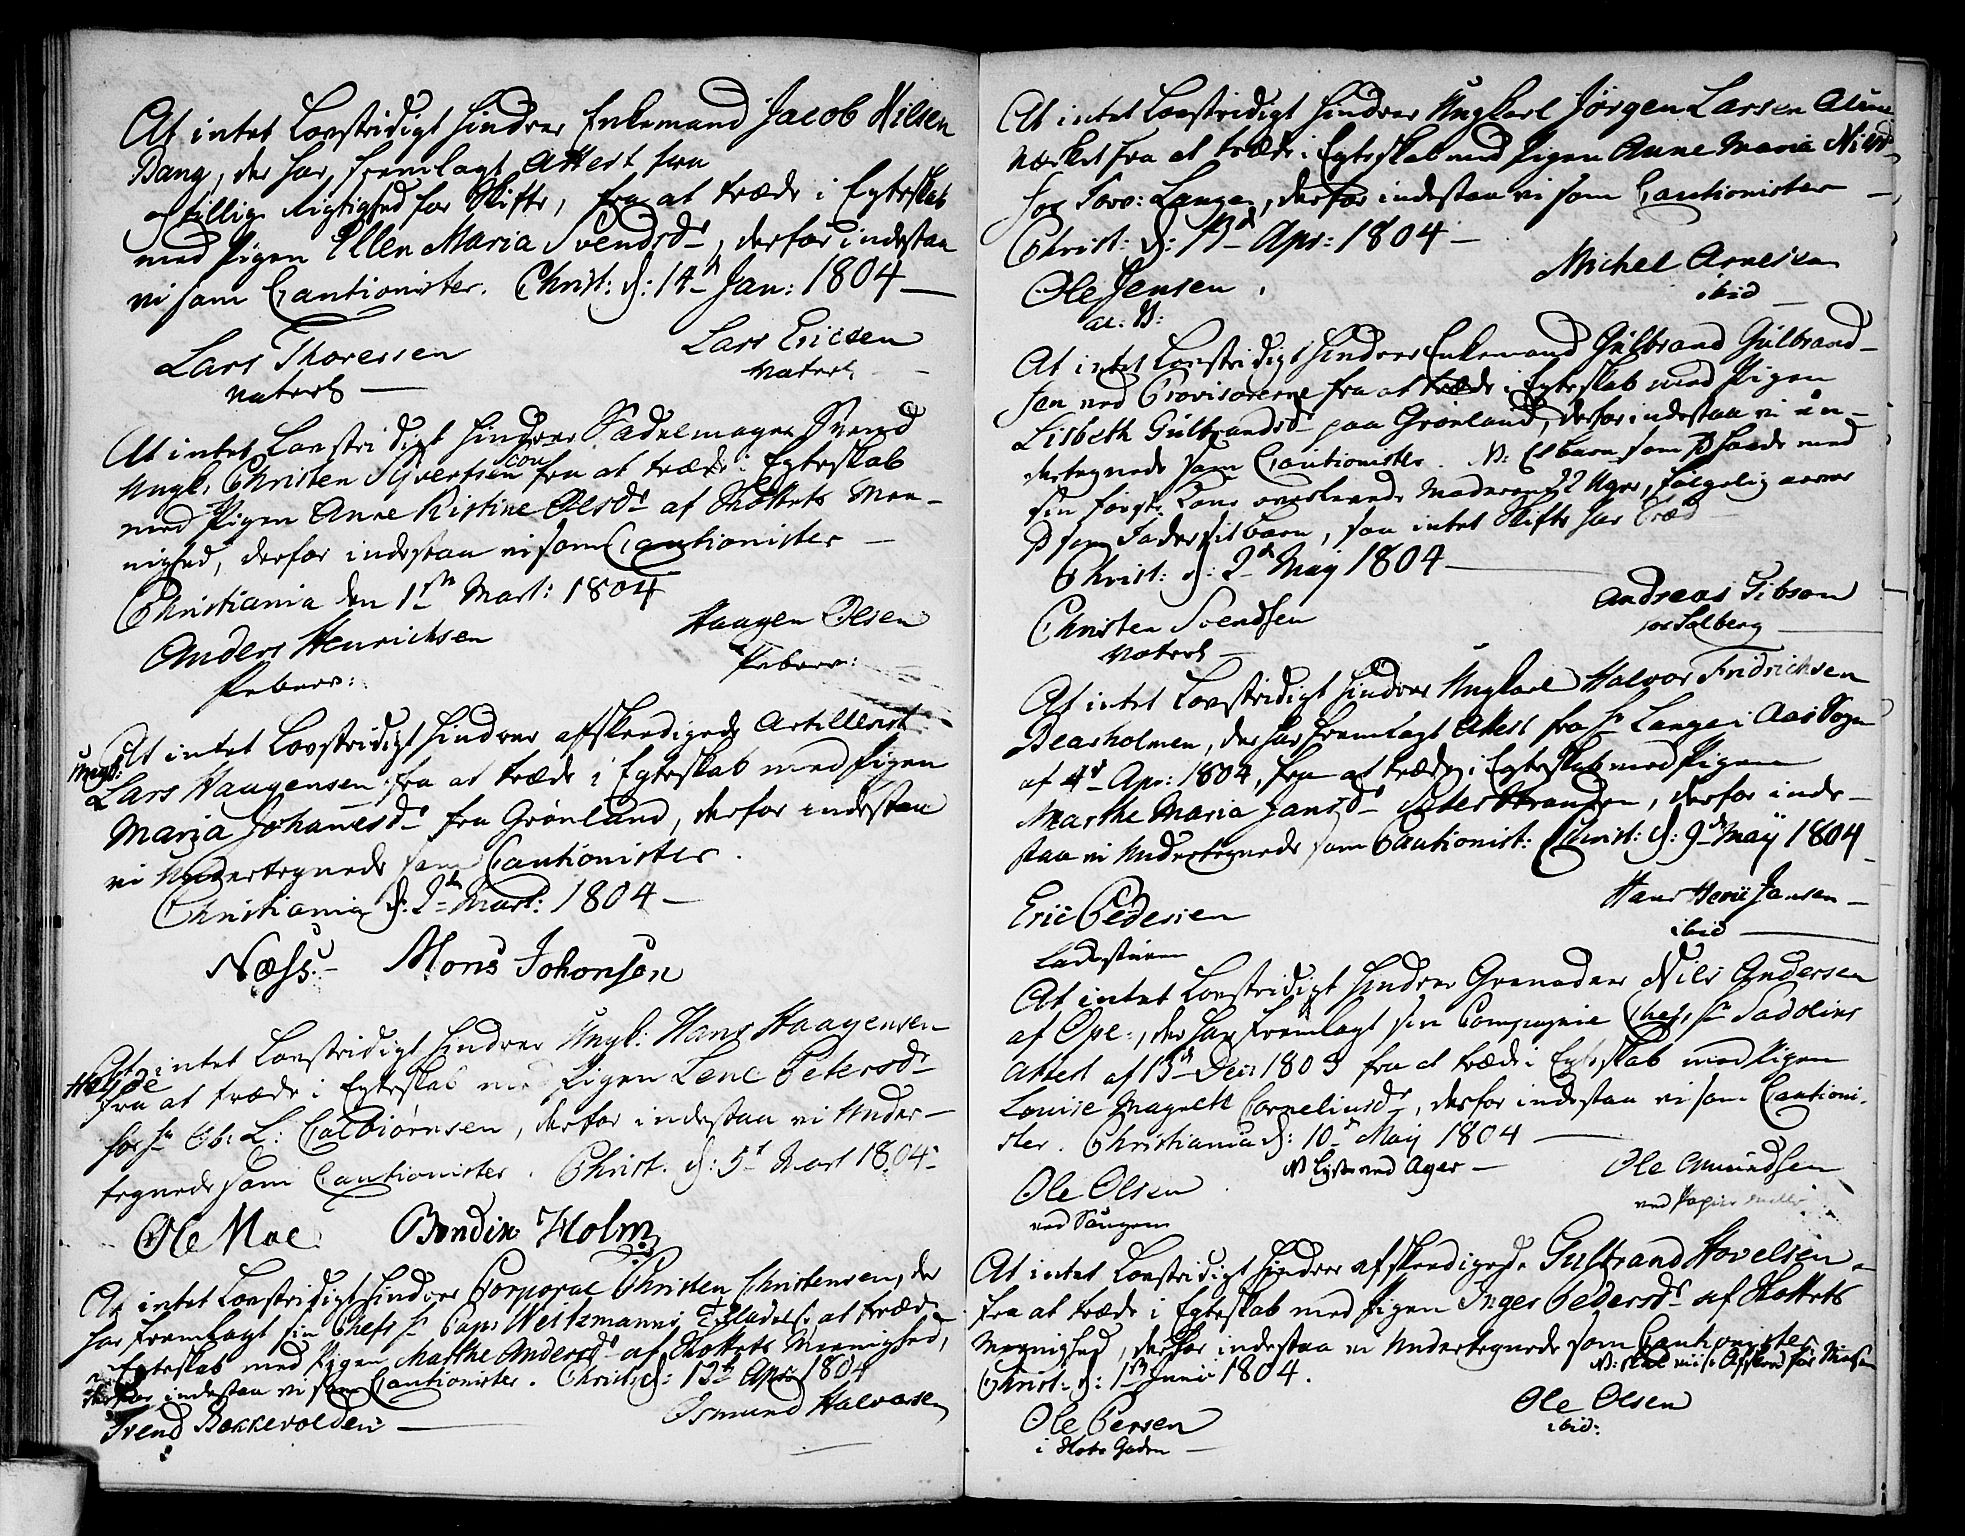 At intet Lovstridigt hindrer Enkemand Jacob Nilsen
Bang, der har fremlagt Attest fra
af tillige Rigtighed for Skifte, fra at træde i Egteskab
med Pigen Ellen Maria Svendsdr, derfor indestaa
vi som Cautionister. Christ: d: 14d Jan: 1804
Lars Thoressen
Vaterl
Lars Ericsen
Vaterl
At intet Lovstridigt hindrer Sadelmager Svend
Ungk: Christen Syvertsen fra at træde i Egteskab
med Pigen Anne Kistine Olsdr af Slottets Mee-
nighed, derfor indestaa vi som Cautionister
Christiania den 1ste Mart: 1804
Anders Henrichsen
Peberv:
Haagen Olsen
Peberv:
At intet Lovstridigt hindrer afskeedigede Artillerist
Ungk:
Lars Haagensen fra at træde i Egteskab med Pigen
Maria Johanesdr fra Grønland, derfor indestaa
vi Undertegnede som Cautionister.
Christiania d: 2den Mart: 1804
Næss. Mons Johonsen
At intet Lovstridigt hindrer Ungk: Hans Haagensen
Helgøe
fra at træde i Egteskab med Pigen Lene Petersdr
hos Hr Ob: L: Calbiørnsen, derfor indestaa vi Under-
tegnede som Cautionister. Christ. d: 5t Mart 1804
Ole Moe Bendix Holm
At intet Lovstridigt hindrer Corporal Christen Christensen, der
har fremlagt sin Chefs Hr Cap: Weitzmanns Tilladelse at træde
i Egteskab med Pigen Marthe Andersdr af Slottets Meenighed,
derfor indestaa vi som Cautionister. Christ: d: 12te Apr: 1804
Svend Bakkevolden
Osmund Halvorsen
At intet Lovstridigt hindrer Ungkarl Jørgen Larsen Alune
Værket fra at træde i Egteskab med Pigen Anne Maria Nilsd
hos Torv: Langaa, derfor indestaa vi som Cautionister
Christ: d: 13d Apr: 1804
Ole Jensen
al: V:
Michel Arnesen
ibid
At intet Lovstridigt hindrer Enkemand Gulbrand Gulbrand-
sen ved Provisorerne fra at træde i Egteskab med Pigen
Lisbeth Gulbrandsdr paa Grønland, derfor indestaa vi un-
dertegnede som Cautionister. NB: Et barn som P haade med
sin første Kone overlevede Moderen 22 Uger, følgelig arver
P som Fader sit barn, saa intet Skifte har Sted
Christ: d: 2d May 1804
Christen Svendsen
Vaterl
Andreas Gibson
hos Solberg
At intet Lovstridigt hindrer Ungkarl Halvor Fridrichsen
Bearholmen, der har fremlagt Attest fra Hr Lange i Aas Sogn
af 4d Apr: 1804, fra at træde i Egteskab med Pigen
Marthe Maria Jansdr Piterstranden, derfor inde-
staa vi Undertegnede som Cautionist: Christ: d: 9d May 1804
Eric Pedersen
Ladestuen
Hans Henr Jansen
ibid
At intet Lovstridigt hindrer Grenadeer Nils Andersen
af Opl:, der har fremlagt sin Compagnie Chefs Hr Sadolins
Attest af 13d Dec: 1803 fra at træde i Egteskab med Pigen
Louise Magreth Corneliusdr, derfor indestaa vi som Cautioni-
ster. Christiania d: 10d May 1804
NB lyste ved Ager
Ole Olsen
ved Saugene
Ole Amundsen
ved Papiir Møllen
At intet Lovstridigt hindrer afskeedigede Gulbrand Hovelsen
fra at træde i Egteskab med Pigen Inger Pedersdr af Slottets
Meenighed, derfor indestaa vi Undertegnede som Cautionister.
Christ: d: 1ste Junii 1804.
NB: skal vise Afskeed før Vielsen
Ole Persen
i Slots Gaden
Ole Olsen
ibid: